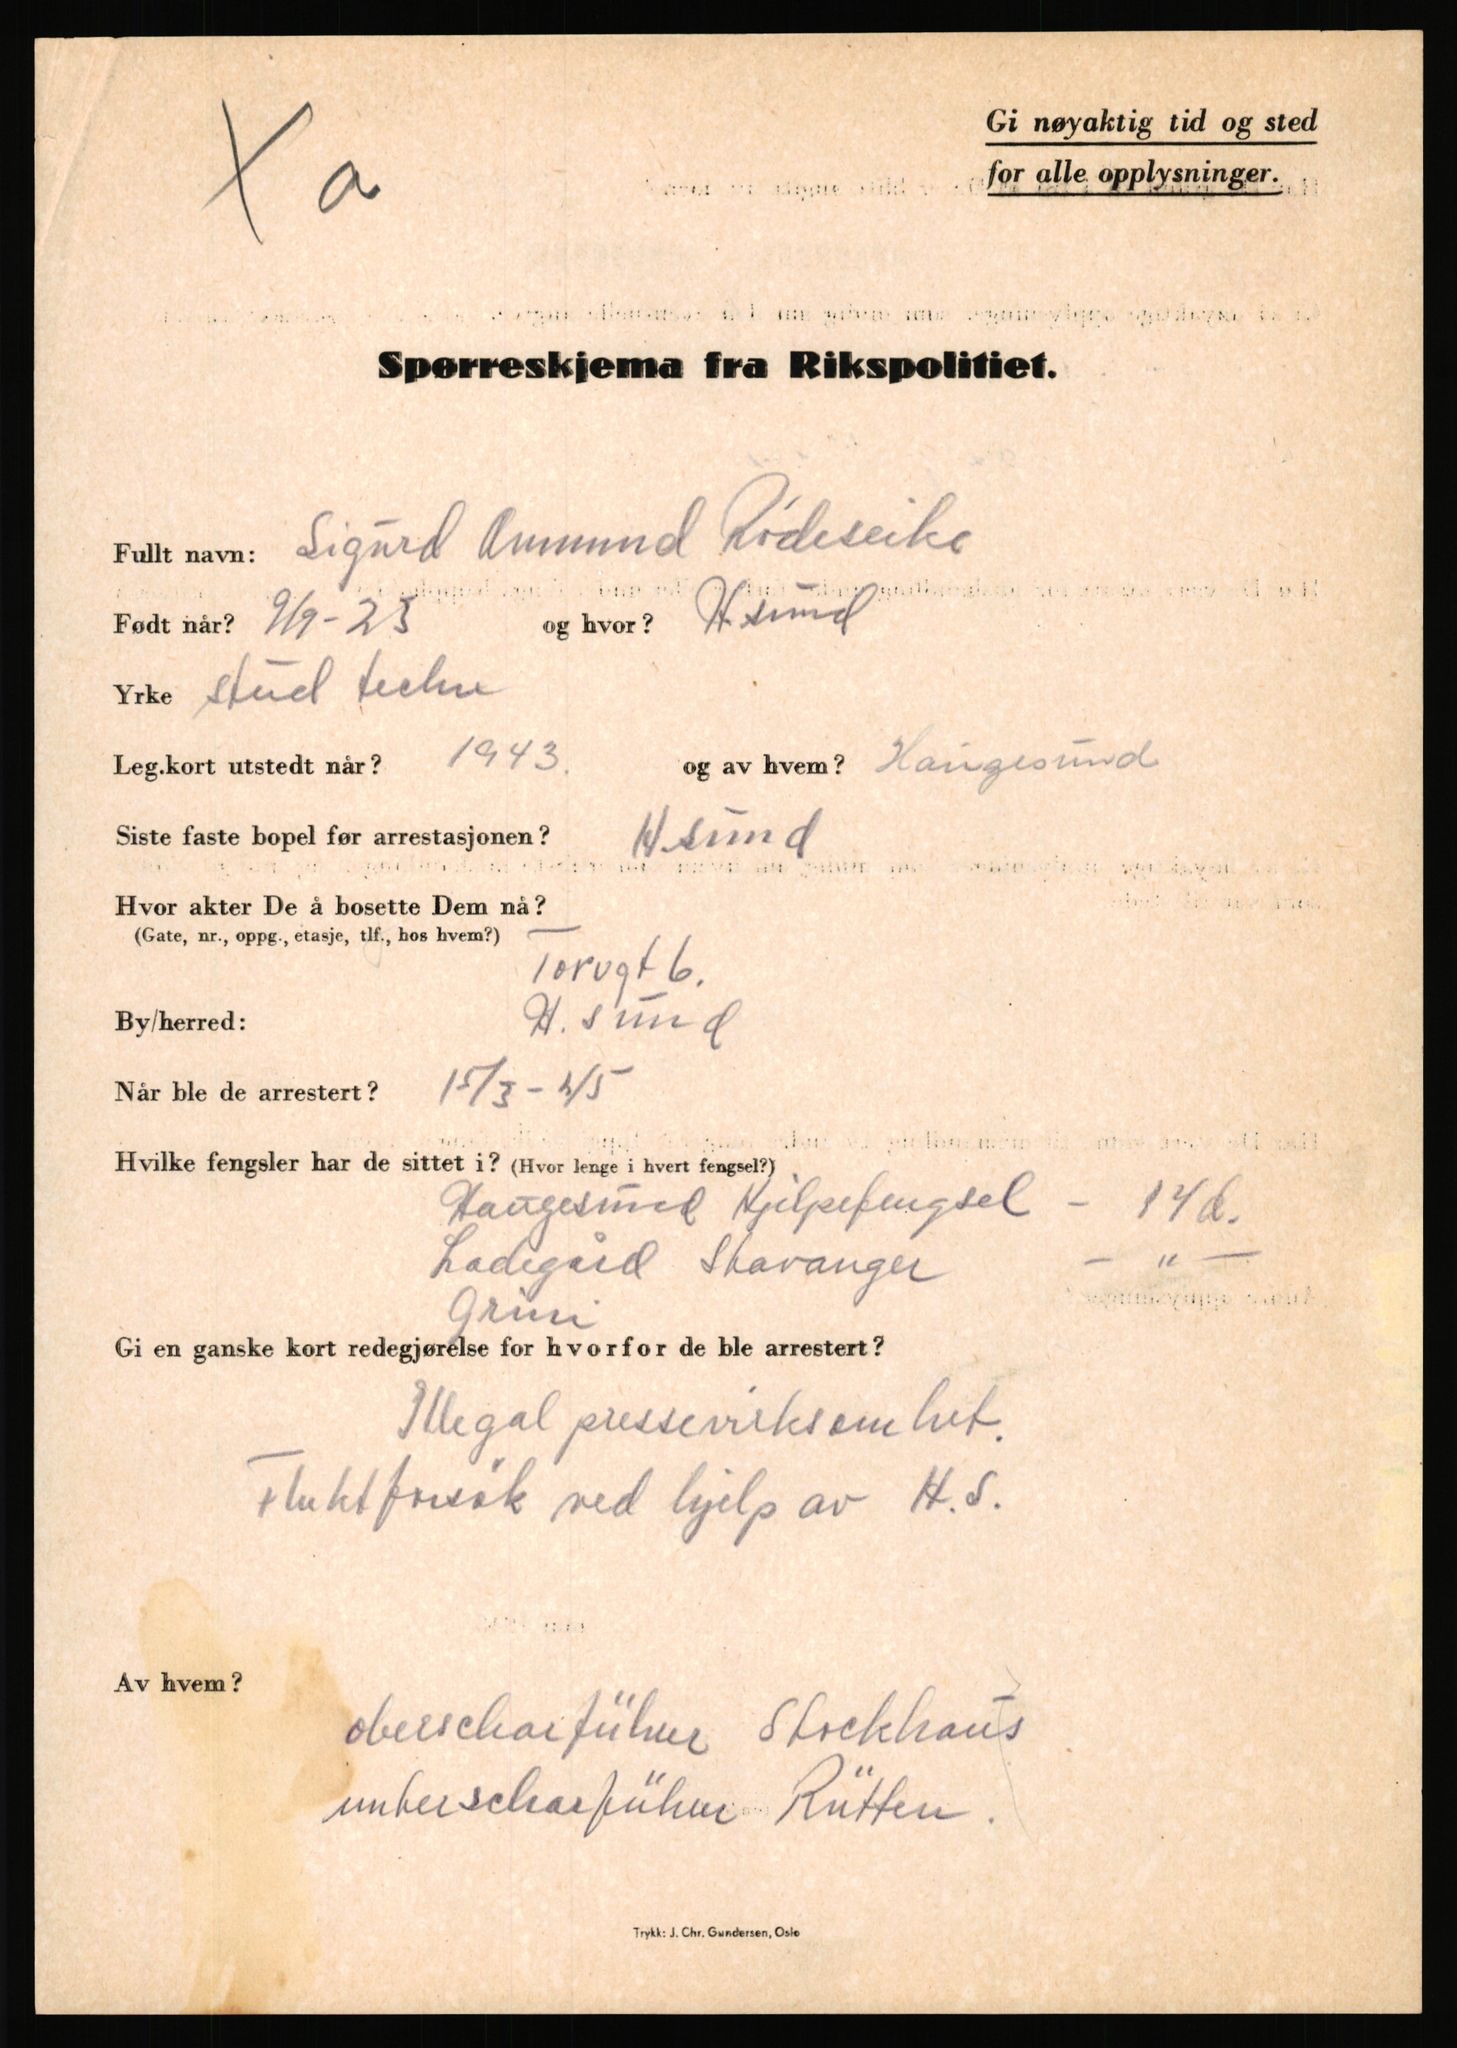 X a
Gi nøyaktig tid og sted
for alle opplysninger.
Spørreskjema fra Rikspolitiet.
Fullt navn: Sigurd Ommund Rødeseike
Født når? 9/9-23 og hvor? H.sund
Yrke stud techn
Leg.kort utstedt når? 1943. og av hvem? Haugesund
Siste faste bopel før arrestasjonen? H.sund
Hvor akter De å bosette Dem nå?
(Gate, nr., oppg., etasje, tlf., hos hvem?)
Torvgt 6.
By/herred: H. sund
Når ble de arrestert? 15/3-45
Hvilke fengsler har de sittet i? (Hvor lenge i hvert fengsel?)
Haugesund Hjelpefengsel - 14 d.
Ladegård Stavanger - " -
Grini
Gi en ganske kort redegjørelse for hvorfor de ble arrestert?
Illegal pressevirksomhet.
Fluktforsøk ved hjelp av H.S.
Av hvem?
oberscharführer Stockhaus
unterscharführer Rütten.
Trykk: J. Chr. Gundersen, Oslo